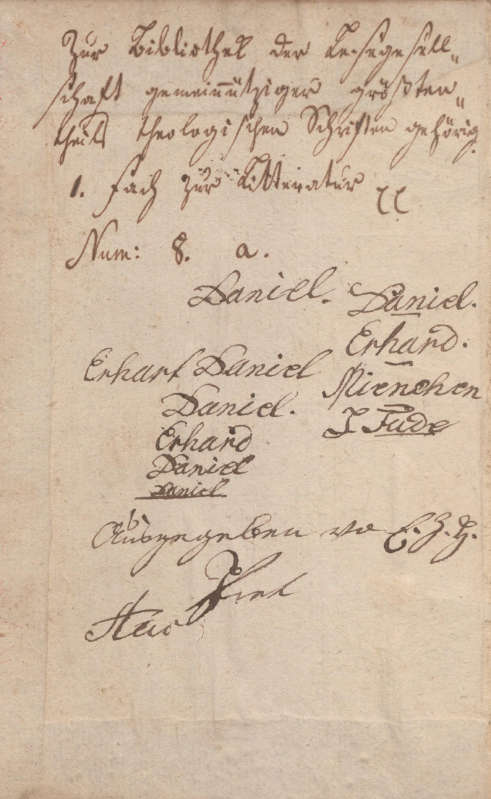 Zur Bibliothek der Lesegesell„
schaft gemeinnütziger größten„
theils theologischen Schriften gehörig.
1. Fach zur Litteratur
Num: 8. a.
Daniel. Daniel.
Erhard.
Erhart Daniel Mienchen
Daniel.
Erhard
Daniel
Daniel
Ausgegeben vo